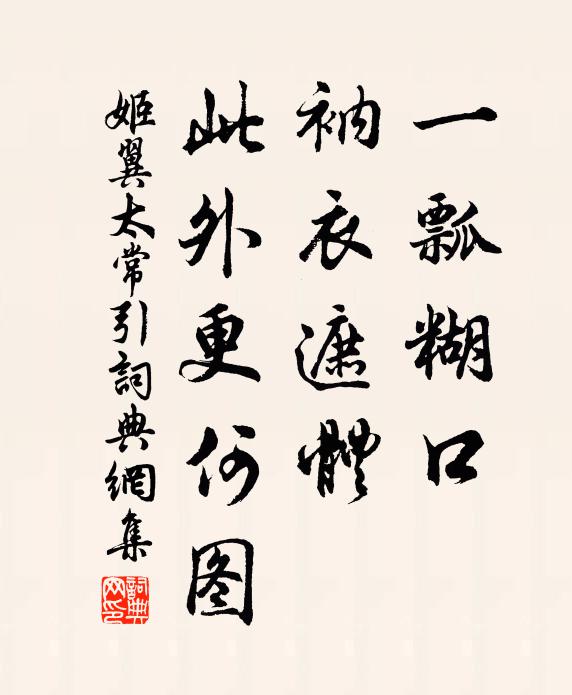 一瓢糊口
衲衣遮體
此外更何图
姬翼太常引詞典網集
詞典
网印